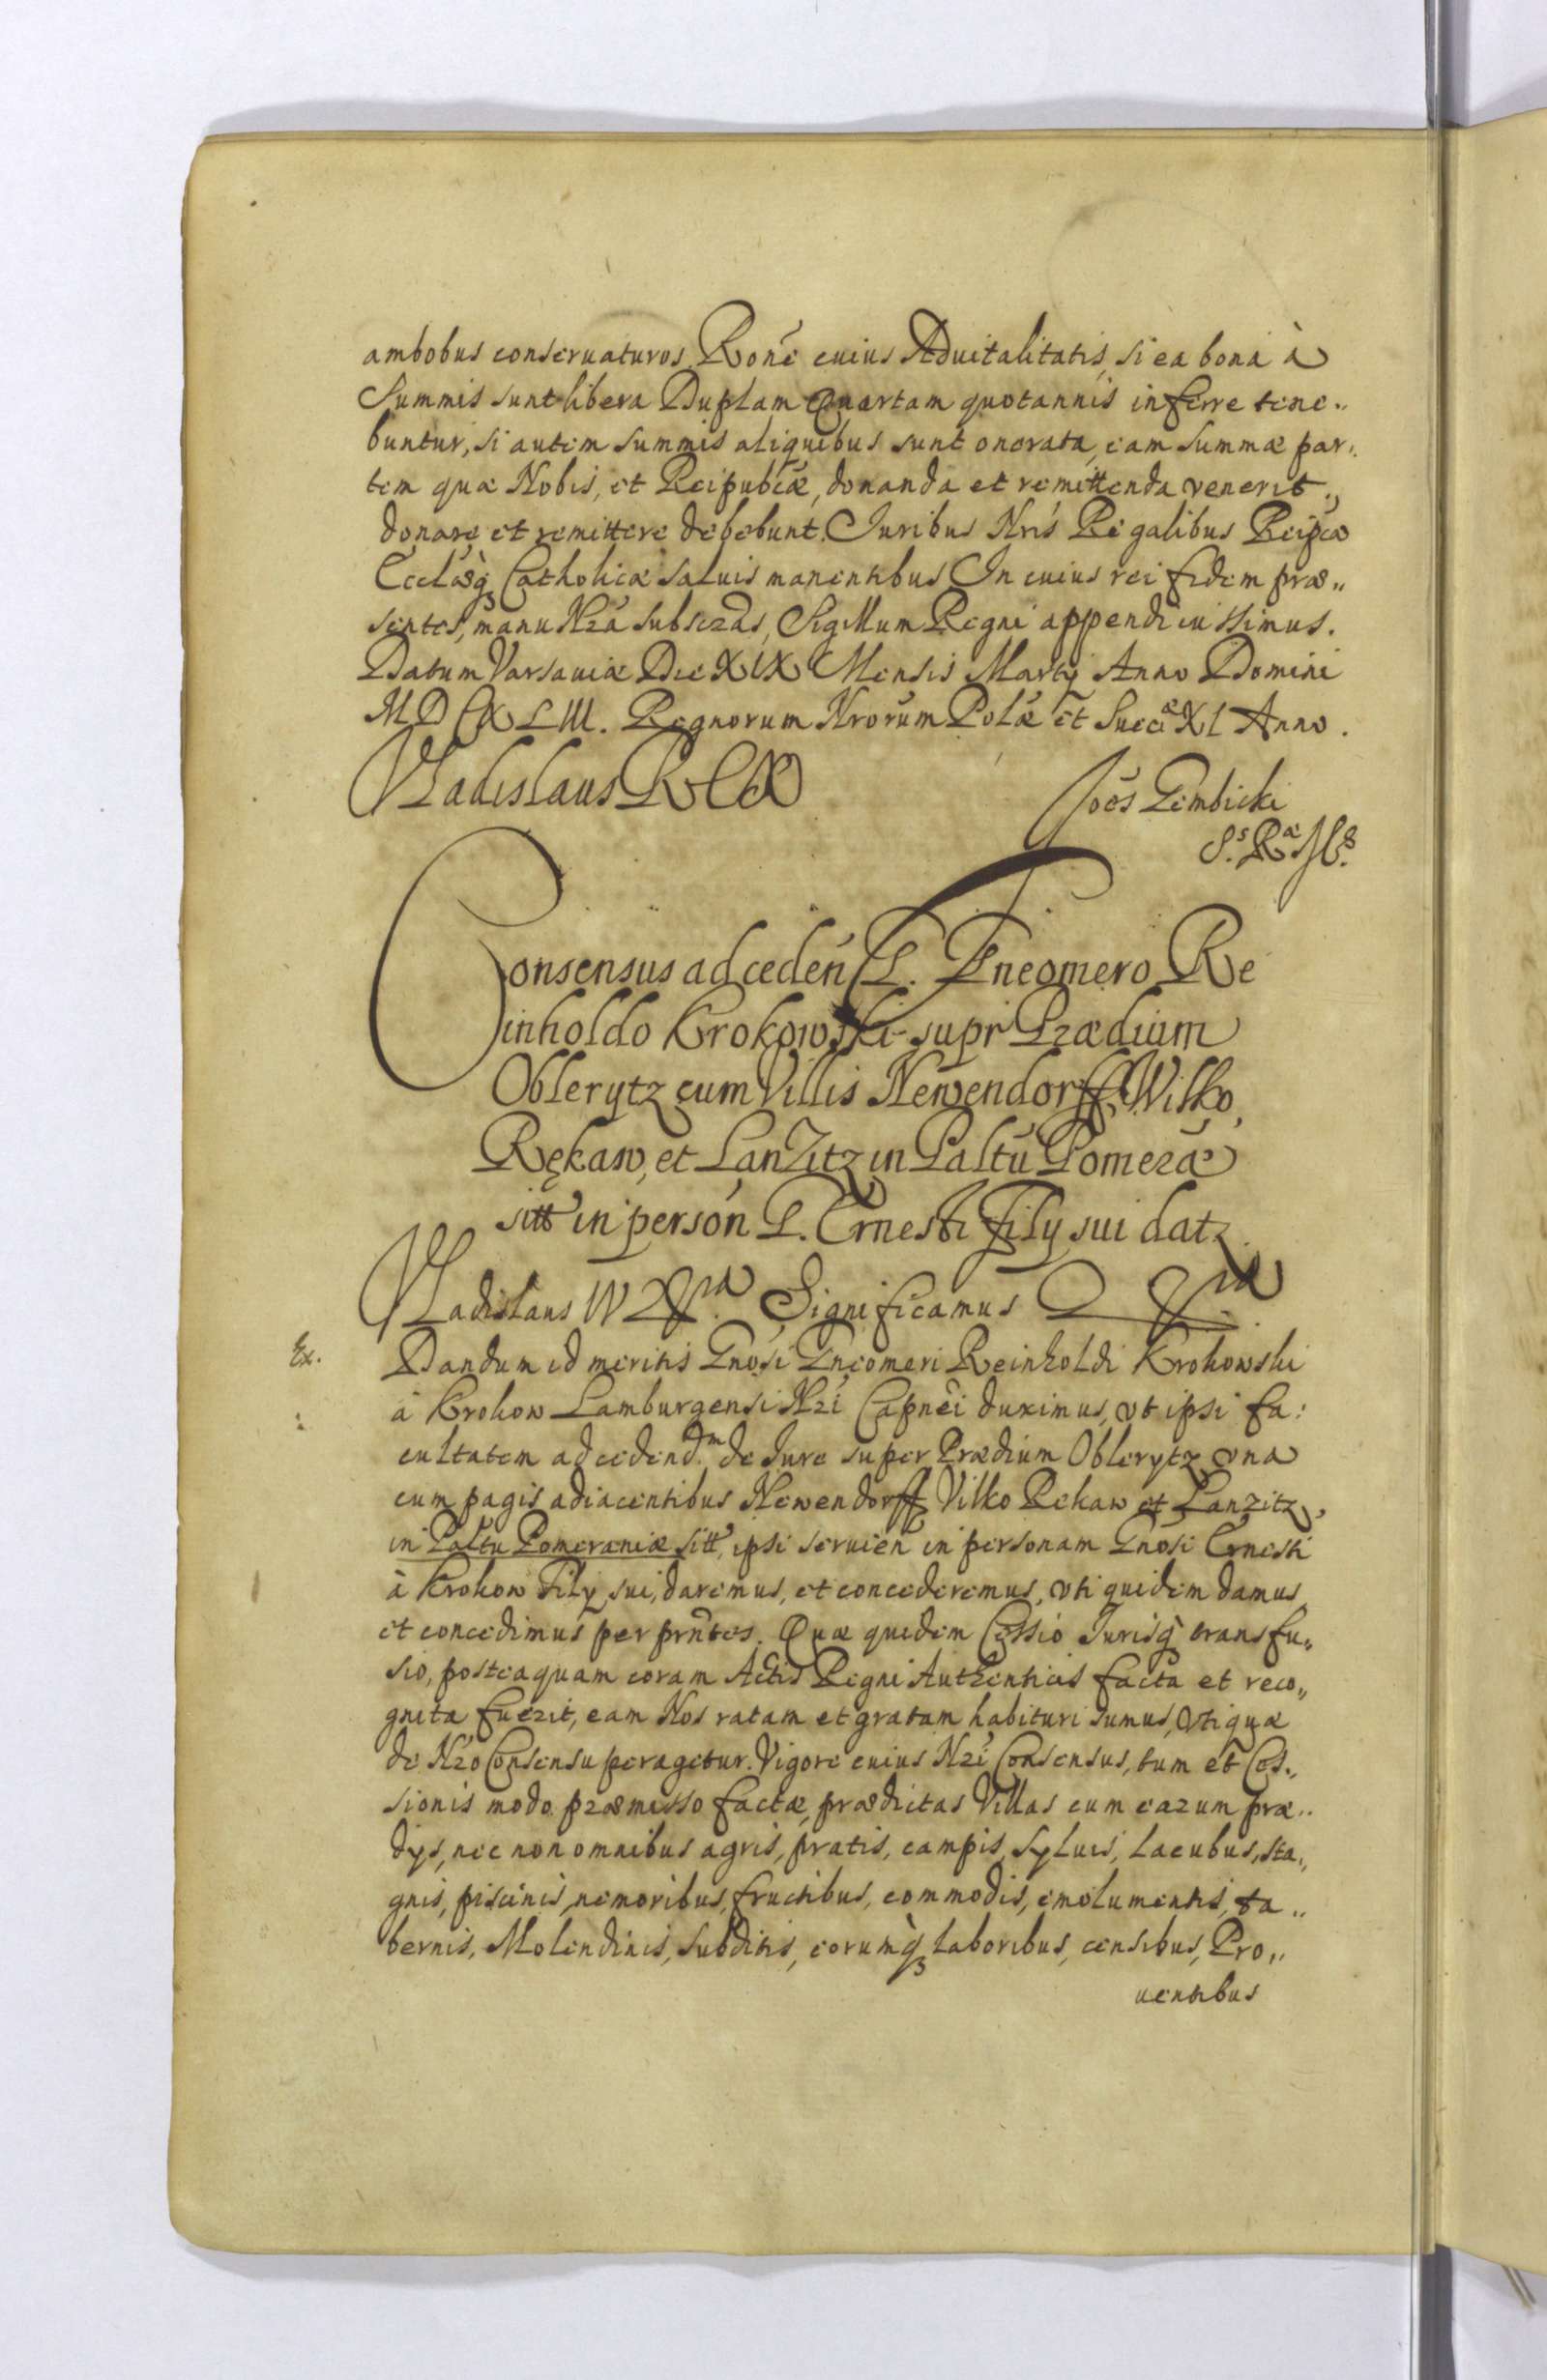 ambobus conseruaturos. Rone cuius Aduitalitatis, si ea bona à
Summis sunt libera Duplam Quartam quotannis inferre tene„
buntur, si autem summis aliquibus sunt onerata, eam summæ par„
tem quæ Nobis, et Reipublicæ, donanda et remittenda venerit„
donare et remittere debebunt. Iuribus Nris Regalibus Reipcæ
Ecclæq3 Catholicæ saluis manentibus. In cuius rei fidem præ„
sentes, manu Nra subscras, Sigillum Regni appendi iussimus.
Datum Varsauiæ Die XIX Mensis Martij Anno Domini
MDCXLIII. Regnorum Nrorum Polæ et Sueciæ XI Anno.
Vladislaus REX
Joes Gembicki
S. R. Mtis
Consensus ad cedeń G. Gneomero Re
inholdo Krokowski supr Prædium
Oblerytz cum Villis Newendorff, Wilko,
Rękaw, et LanZitz in Paltu Pomeræ
sitt in persón G. Ernesti Filij sui datz
Vladislaus IV Significamus
Ex. Dandum id meritis Gnosi Gneomeri Reinholdi Krokowski
à Krokow Lamburgensi Nri Capnei duximus, vt ipsi fa:
cultatem ad cedend.m de Iure super Prædium Oblerytz vna
cum pagis adiacentibus Newendorff Vilko Rekaw et Lanzitz,
in Paltu Pomeraniæ sitt, ipsi seruien in personam Gnosi Ernesti
à Krokow Filij sui, daremus, et concederemus, vti quidem damus
et concedimus per prntes. Quæ quidem Cessio Iurisq transfu„
sio, posteaquam coram Actis Regni Authenticis facta et reco„
gnita fuerit, eam Nos ratam et gratam habituri sumus, vti quæ
de Nro Consensu peragetur. Vigore cuius Nri Consensus, tum et Ces„
sionis modo præmisso factæ, prædictas Villas cum earum præ„
dijs, nec non omnibus agris, pratis, campis, syluis, lacubus, sta„
gnis, piscinis, nemoribus, fructibus, commodis, emolumentis, ta„
bernis, Molendinis, subditis, eorumq3 laboribus, censibus, Pro„
uentibus